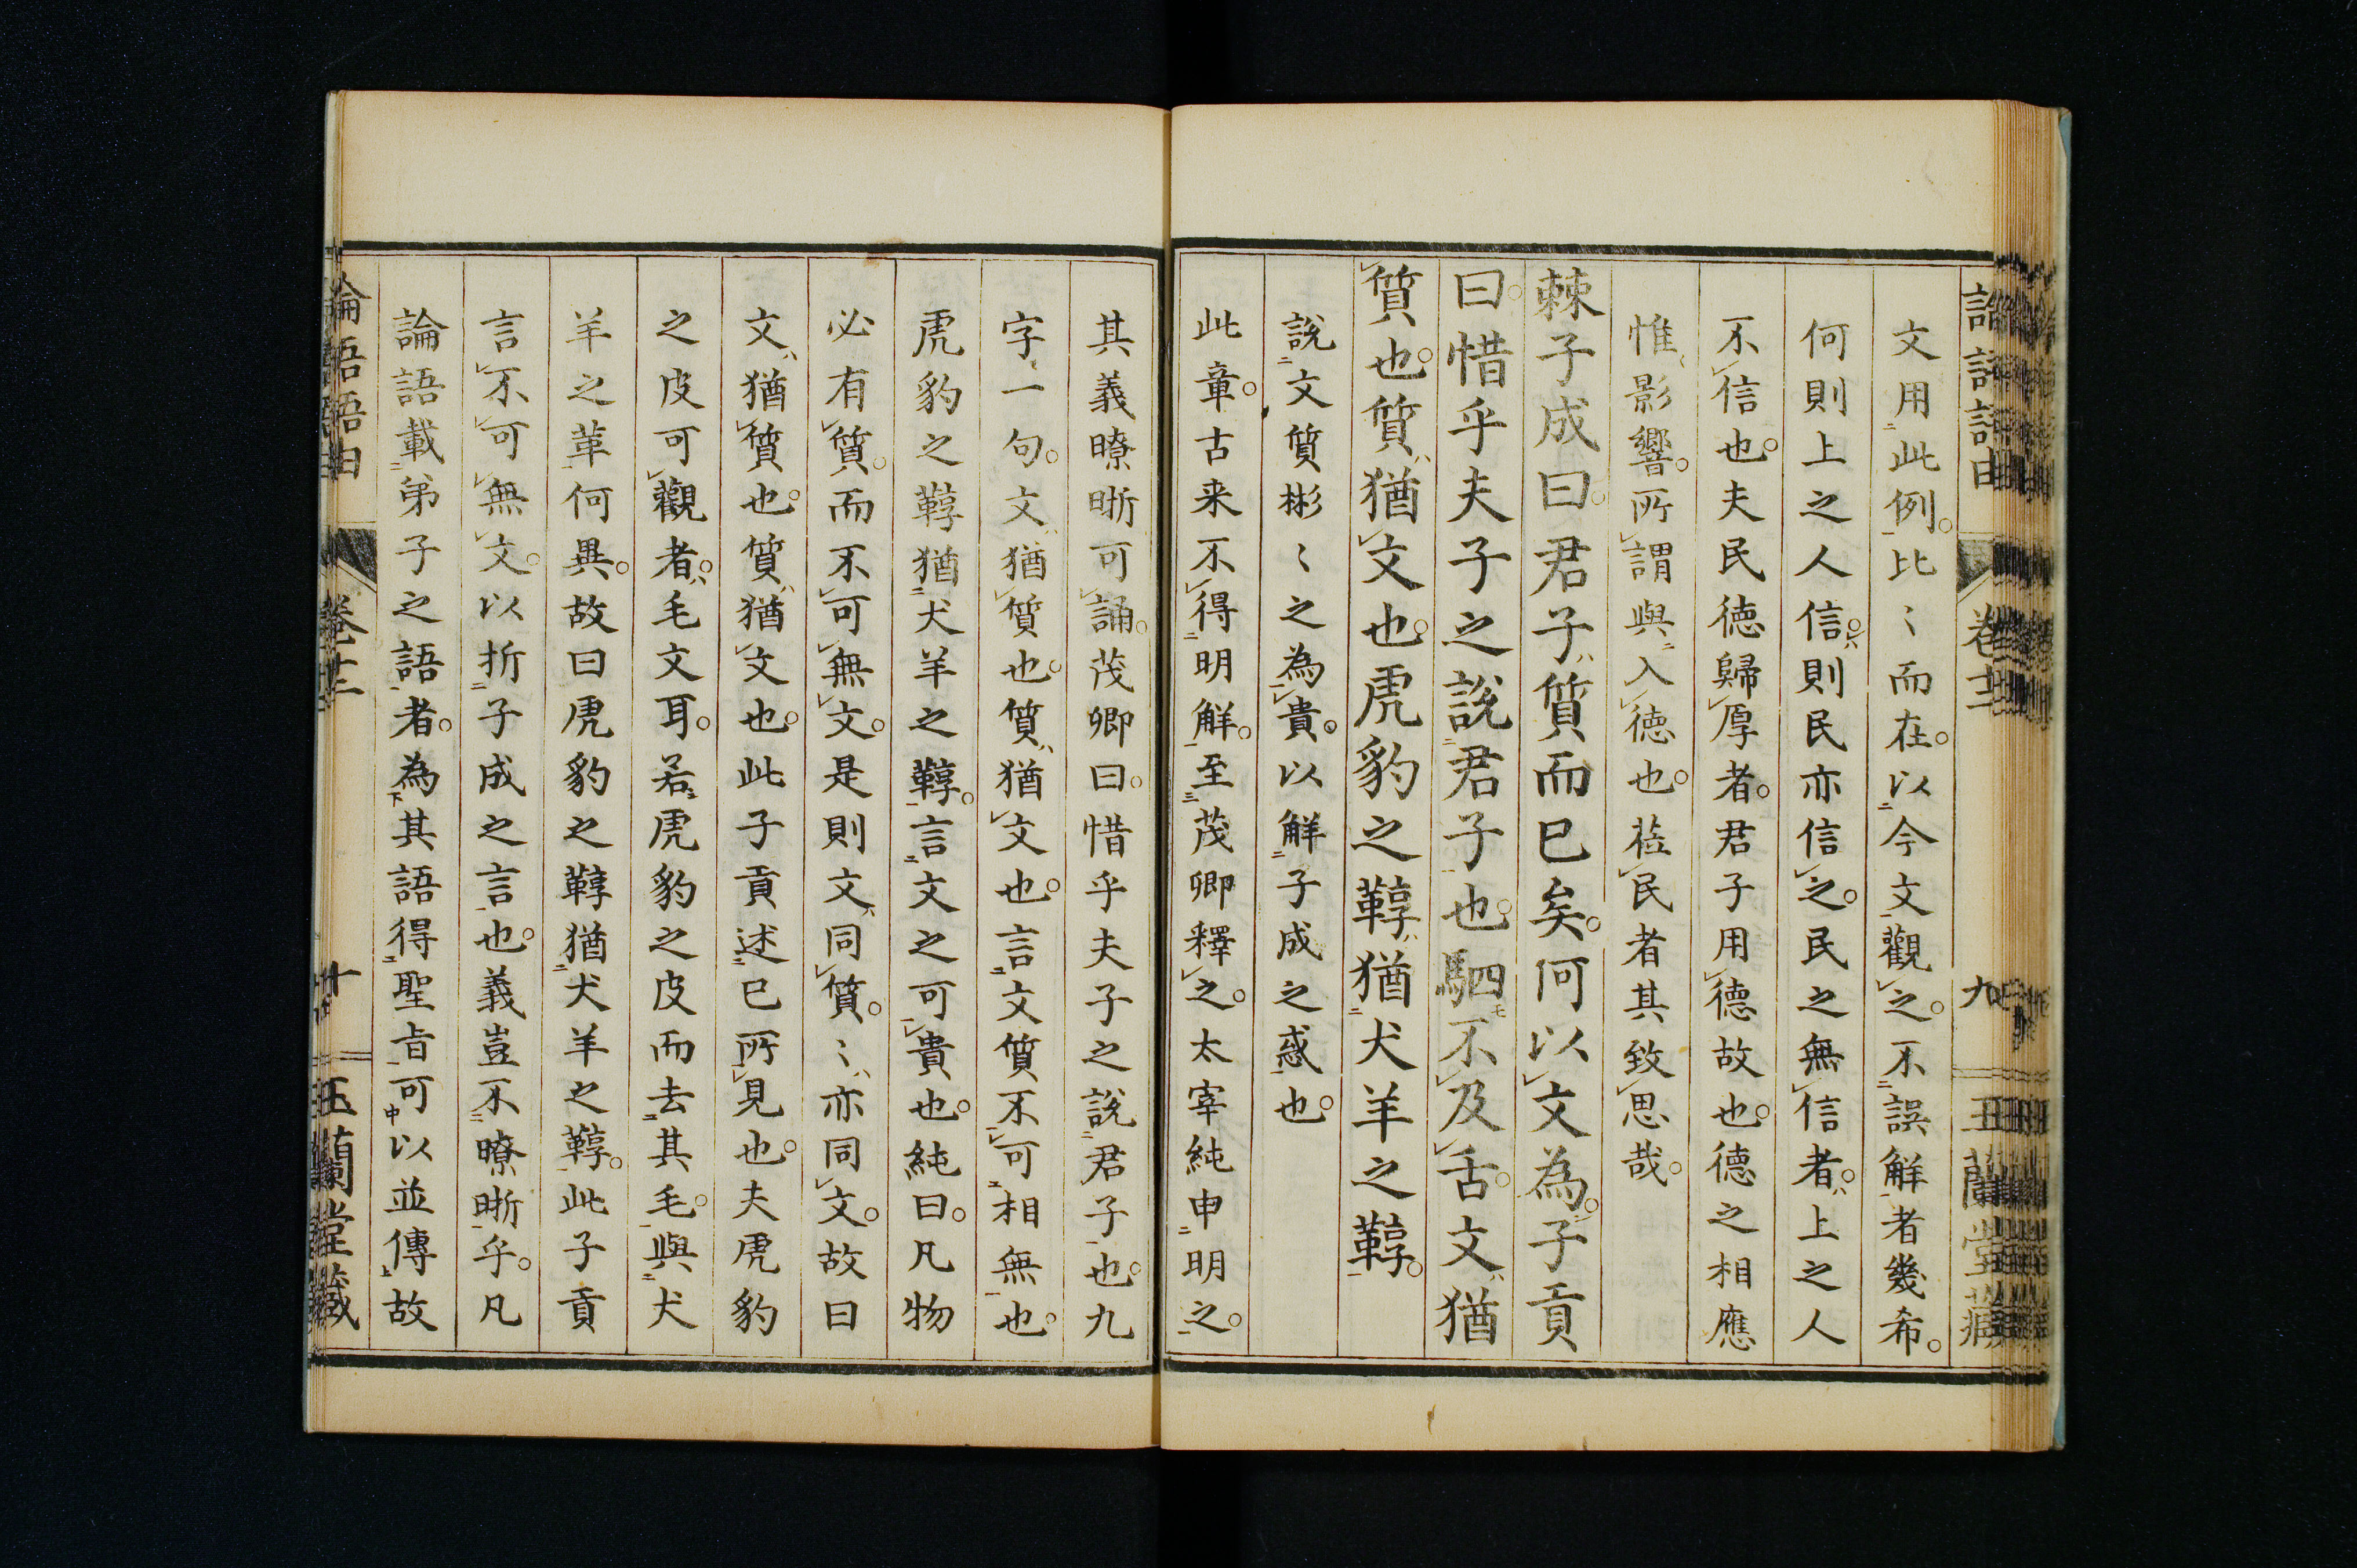 論語語由 卷十二 九 玉蘭堂藏
文用此例。比〻而在。以今文觀之。不誤解者幾希。
何則上之人信。則民亦信之。民之無信者。上之人
不信也。夫民德歸厚者。君子用德故也。德之相應
惟影響。所謂與入德也。莅民者其致思哉。
棘子成曰。君子質而已矣。何以文為。子貢
曰。惜乎夫子之說君子也。駟不及舌。文猶
質也。質猶文也。虎豹之鞟猶犬羊之鞟。
說文質彬〻之為貴。以解子成之惑也。
此章。古来不得明解。至茂卿釋之。太宰純申明之。
其義暸晣可誦。茂卿曰。惜乎夫子之說君子也。九
字一句。文猶質也。質猶文也。言文質不可相無也。
虎豹之鞟猶犬羊之鞟。言文之可貴也。純曰。凡物
必有質。而不可無文。是則文同質。〻亦同文。故曰
文猶質也。質猶文也。此子貢述已所見也。夫虎豹
之皮可觀者。毛文耳。若虎豹之皮而去其毛。與犬
羊之革何異。故曰虎豹之鞟猶犬羊之鞟。此子貢
言不可無文。以折子成之言也。義豈不暸晣乎。凡
論語載弟子之語者。為其語得聖旨可以並傳故
論語語由 卷十二 十 玉蘭堂藏